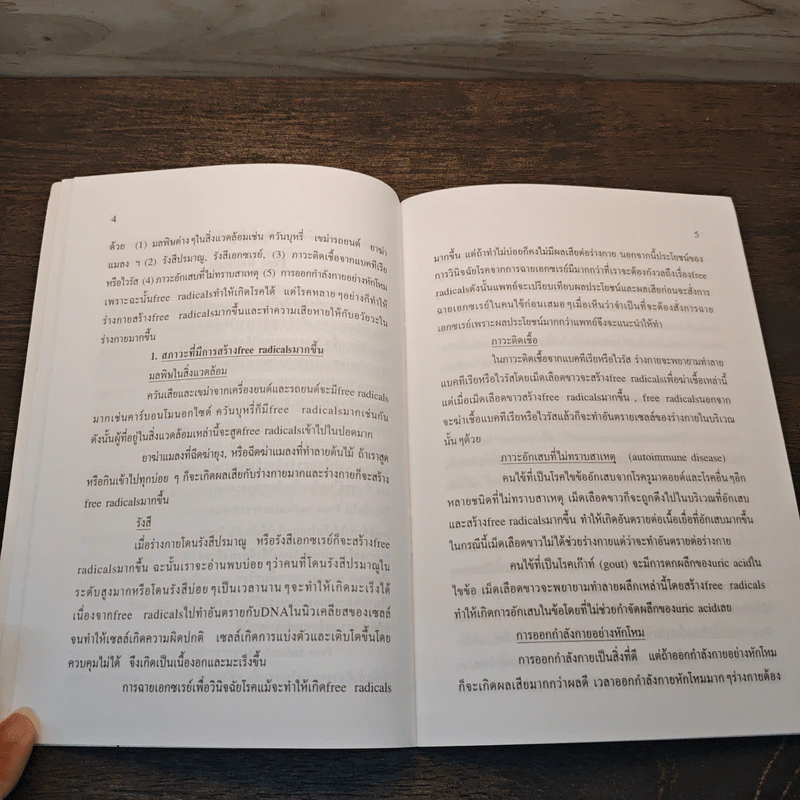 4
ด้วย (1) มลพิษต่างๆในสิ่งแวดล้อมเช่น ควันบุหรี่ เขม่ารถยนต์ ยาฆ่า
แมลง ฯ (2) รังสีปรมาณู, รังสีเอกซเรย์, (3) ภาวะติดเชื้อจากแบคทีเรีย
หรือไวรัส (4) ภาวะอักเสบที่ไม่ทราบสาเหตุ (5) การออกกำลังกายอย่างหักโหม
เพราะฉะนั้นfree radicalsทำให้เกิดโรคได้ แต่โรคหลายๆอย่างก็ทำให้
ร่างกายสร้างfree radicalsมากขึ้นและทำความเสียหายให้กับอวัยวะใน
ร่างกายมากขึ้น
1. สภาวะที่มีการสร้างfree radicalsมากขึ้น
มลพิษในสิ่งแวดล้อม
ควันเสียและเขม่าจากเครื่องยนต์และรถยนต์จะมีfree radicals
มากเช่นคาร์บอนโมนอกไซด์ ควันบุหรี่ก็มีfree radicalsมากเช่นกัน
ดังนั้นผู้ที่อยู่ในสิ่งแวดล้อมเหล่านี้จะสูดfree radicalsเข้าไปในปอดมาก
ยาฆ่าแมลงที่ฉีดฆ่ายุง, หรือฉีดฆ่าแมลงที่ทำลายต้นไม้ ถ้าเราสูด
หรือกินเข้าไปทุกบ่อย ๆ ก็จะเกิดผลเสียกับร่างกายมากและร่างกายก็จะสร้าง
free radicalsมากขึ้น
รังสี
เมื่อร่างกายโดนรังสีปรมาณู หรือรังสีเอกซเรย์ก็จะสร้างfree
radicalsมากขึ้น ฉะนั้นเราจะอ่านพบบ่อยๆว่าคนที่โดนรังสีปรมาณูใน
ระดับสูงมากหรือโดนรังสีบ่อยๆเป็นเวลานานๆจะทำให้เกิดมะเร็งได้
เนื่องจากfree radicalsไปทำอันตรายกับDNAในนิวเคลียสของเซลล์
จนทำให้เซลล์เกิดความผิดปกติ เซลล์เกิดการแบ่งตัวและเติบโตขึ้นโดย
ควบคุมไม่ได้ จึงเกิดเป็นเนื้องอกและมะเร็งขึ้น
การฉายเอกซเรย์เพื่อวินิจฉัยโรคแม้จะทำให้เกิดfree radicals
5
มากขึ้น แต่ถ้าทำไม่บ่อยก็คงไม่มีผลเสียต่อร่างกาย นอกจากนี้ประโยชน์ของ
การวินิจฉัยโรคจากการฉายเอกซเรย์มีมากกว่าที่เราจะต้องกังวลถึงเรื่องfree
radicalsดังนั้นแพทย์จะเปรียบเทียบผลประโยชน์และผลเสียก่อนจะสั่งการ
ฉายเอกซเรย์ในคนไข้ก่อนเสมอๆเมื่อเห็นว่าจำเป็นที่จะต้องสั่งการฉาย
เอกซเรย์เพราะผลประโยชน์มากกว่าแพทย์จึงจะแนะนำให้ทำ
ภาวะติดเชื้อ
ในภาวะติดเชื้อจากแบคทีเรียหรือไวรัส ร่างกายจะพยายามทำลาย
แบคทีเรียหรือไวรัสโดยเม็ดเลือดขาวจะสร้างfree radicalsเพื่อฆ่าเชื้อเหล่านี้
แต่เมื่อเม็ดเลือดขาวสร้างfree radicalsมากขึ้น , free radicalsนอกจาก
จะฆ่าเชื้อแบคทีเรียหรือไวรัสแล้วก็จะทำอันตรายเซลล์ของร่างกายในบริเวณ
นั้นๆด้วย
ภาวะอักเสบที่ไม่ทราบสาเหตุ (autoimmune disease)
คนไข้ที่เป็นโรคไขข้ออักเสบจากโรครูมาตอยด์และโรคอื่นๆอีก
หลายชนิดที่ไม่ทราบสาเหตุ เม็ดเลือดขาวก็จะถูกดึงไปในบริเวณที่อักเสบ
และสร้างfree radicalsมากขึ้น ทำให้เกิดอันตรายต่อเนื้อเยื่อที่อักเสบมากขึ้น
ในกรณีนี้เม็ดเลือดขาวไม่ได้ช่วยร่างกายแต่ว่าจะทำอันตรายต่อร่างกาย
คนไข้ที่เป็นโรคเก๊าท์ (gout) จะมีการตกผลึกของuric acidใน
ไขข้อ เม็ดเลือดขาวจะพยายามทำลายผลึกเหล่านี้โดยสร้างfree radicals
ทำให้เกิดการอักเสบในข้อโดยที่ไม่ช่วยกำจัดผลึกของuric acidเลย
การออกกำลังกายอย่างหักโหม
การออกกำลังกายเป็นสิ่งที่ดี แต่ถ้าออกกำลังกายอย่างหักโหม
ก็จะเกิดผลเสียมากกว่าผลดี เวลาออกกำลังกายหักโหมมากๆร่างกายต้อง